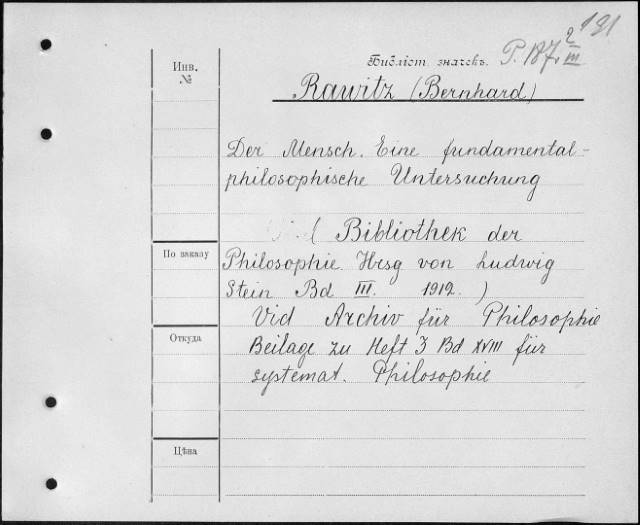 181
Библіот. значекъ. P. 187. 2/III
Инв. №
Rawitz (Bernhard)
Der Mensch. Eine fundamental-
philosophische Untersuchung
( Bibliothek der
По заказу
Philosophie. Hrsg von Ludwig
Stein Bd III. 1912. )
Vid Archiv für Philosophie
Откуда
Beilage zu Heft 3 Bd XVIII für
systemat. Philosophie
Цѣна